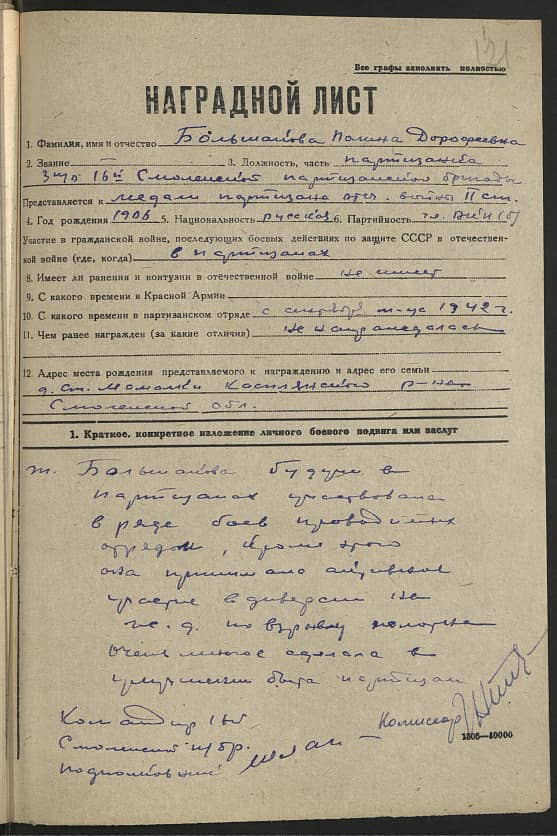 121
Все графы заполнять полностью
НАГРАДНОЙ ЛИСТ
1. Фамилия, имя и отчество Большакова Полина Дорофеевна
2. Звание — 3. Должность, часть партизанка
16й Смоленской партизанской бригады
Представляется к медали партизана отеч. войны II ст.
4. Год рождения 1906 5. Национальность русская 6. Партийность чл. ВКП(б)
Участие в гражданской войне, последующих боевых действиях по защите СССР в отечествен-
ной войне (где, когда) в партизанах
8. Имеет ли ранения и контузии в отечественной войне не имеет
9. С какого времени в Красной Армии
10. С какого времени в партизанском отряде с сентября м-ца 1942 г.
11. Чем ранее награжден (за какие отличия) не награждалась
12. Адрес места рождения представляемого к награждению и адрес его семьи
д. Ст. Касплянского р-на
Смоленской обл.
1. Краткое, конкретное изложение личного боевого подвига или заслуг
т. Большакова будучи в
партизанах участвовала
в ряде боев проводимых
отрядом, кроме этого
она принимала активное
участие в диверсии на
ж. д. по взрыву полотна
Очень многое сделала в
улучшении быта партизан
Командир 16й
Смоленской п/бр.
подполковник
Комиссар
1505—40000